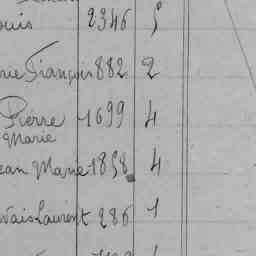 ouis 2346 5
rie François 882 2
Pierre 1699 4
Marie
ean Marie 1858 4
vais Laurent 286 1